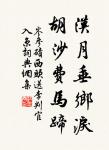 漢月垂鄉淚
胡沙費馬蹄
岑參磧西頭送李判官
入京詞典集